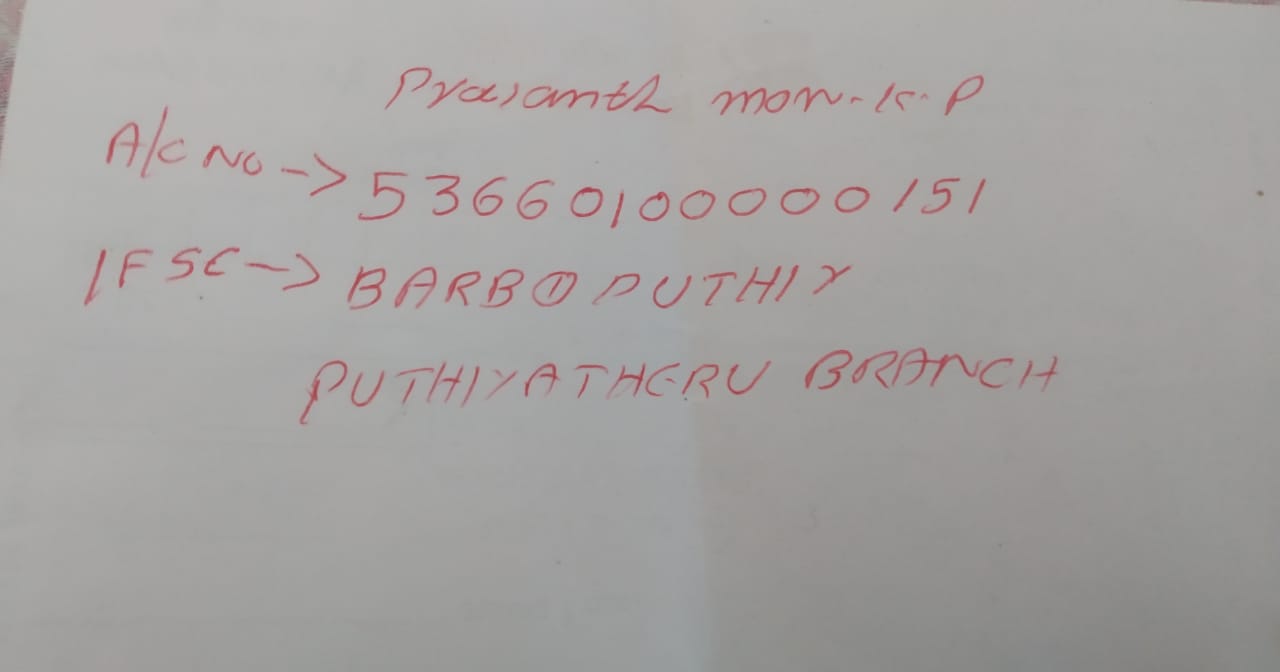 Prasanth mon.K.P
A/C NO -> 53660100000151
IFSC -> BARB0PUTHIY
PUTHIYATHERU BRANCH